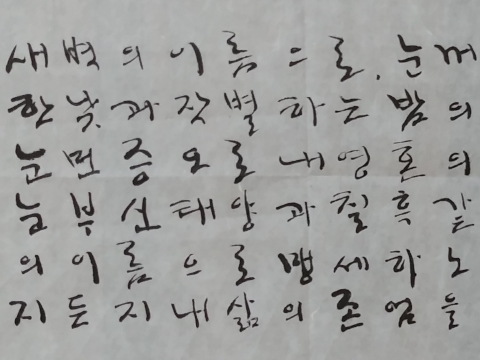 새벽의이름으로, 눈꺼
한낮과작별하는밤의
눈먼증오로내영혼의
눈부신태양과칠흑같
의이름으로맹세하노
지든지내삶의존엄을